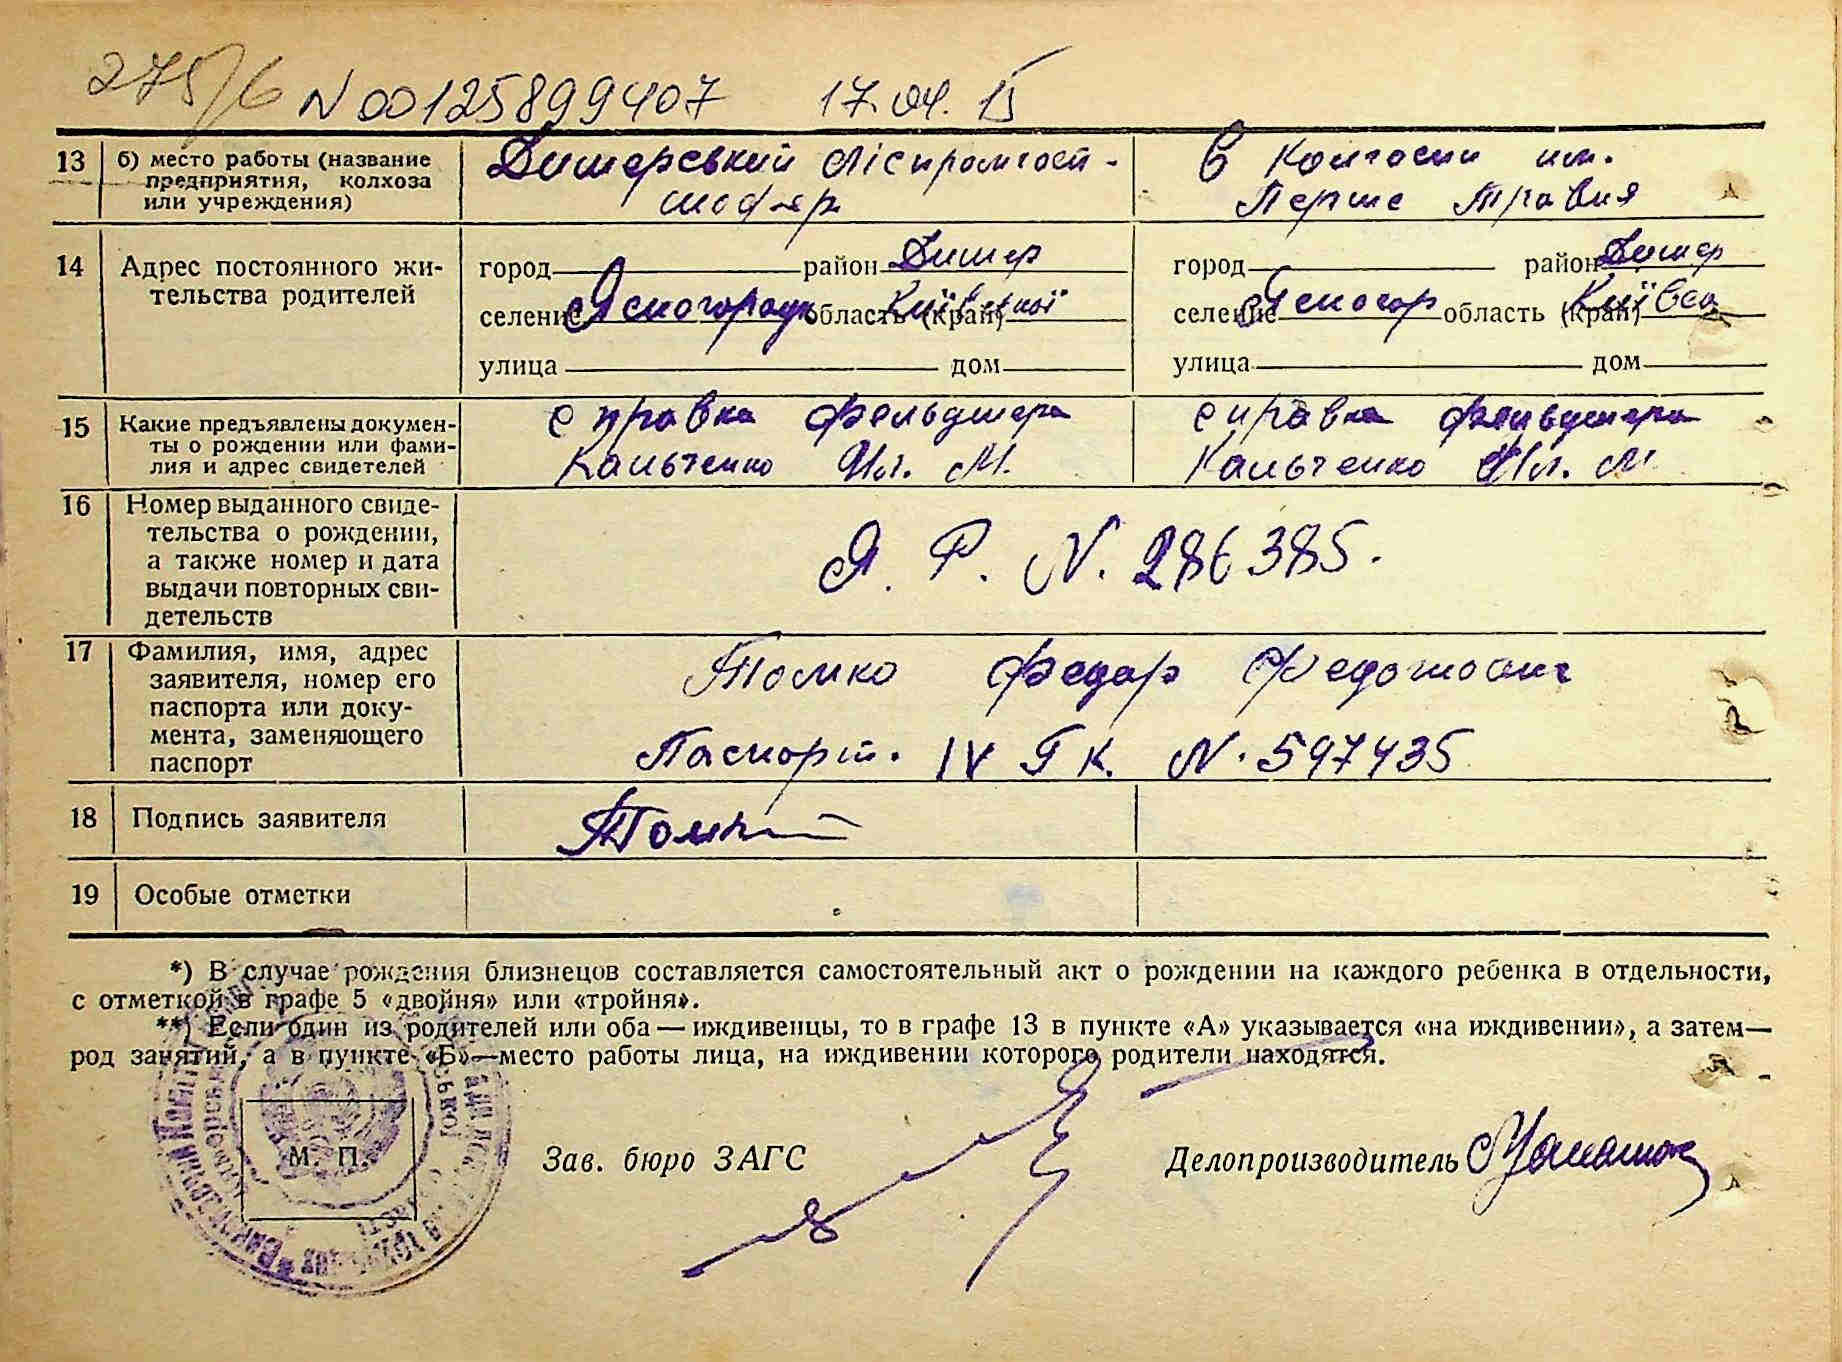 275/6 N 00125899407 17.04.15
13 б) место работы (название предприятия, колхоза или учреждения)
Димерський Ліспромгосп - шофер
В колгоспи им. Перше Травня
14 Адрес постоянного жительства родителей
город район Димер
селение Ясногородк область (край) Київської
улица дом
город район Димер
селение Ясногор область (край) Київсь
улица дом
15 Какие предъявлены документы о рождении или фамилия и адрес свидетелей
справка фельдшера
Кальченко Ил. М.
справка фельдшера
Кальченко Ил. М
16 Номер выданного свидетельства о рождении, а также номер и дата выдачи повторных свидетельств
Я. Р. N. 286385.
17 Фамилия, имя, адрес заявителя, номер его паспорта или документа, заменяющего паспорт
Томко Федар
Паспорт. IV ГК. N. 597435
18 Подпись заявителя
Томк
19 Особые отметки
*) В случае рождения близнецов составляется самостоятельный акт о рождении на каждого ребенка в отдельности,
с отметкой в графе 5 «двойня» или «тройня».
**) Если один из родителей или оба — иждивенцы, то в графе 13 в пункте «А» указывается «на иждивении», а затем—
род занятий, а в пункте «Б»—место работы лица, на иждивении которого родители находятся.
М. П.
Зав. бюро ЗАГС
Делопроизводитель